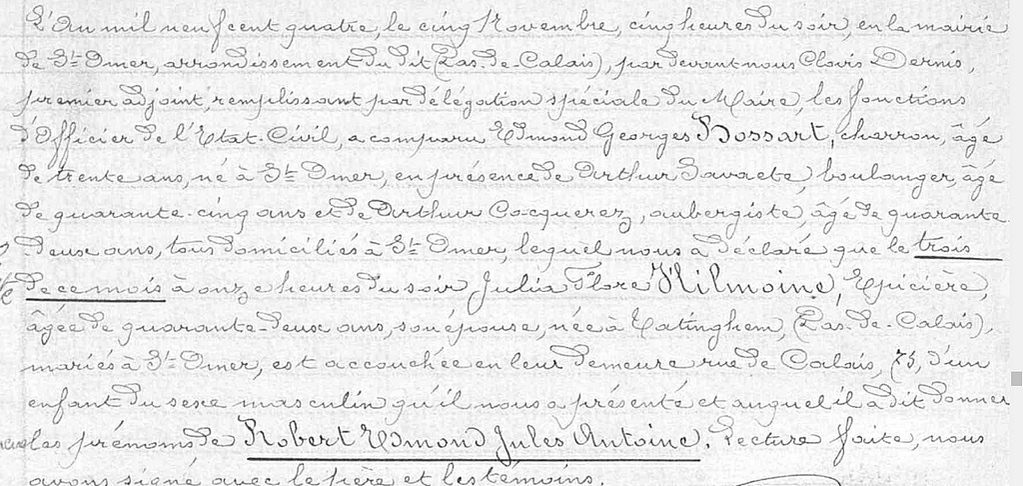 L'An mil neuf cent quatre, le cinq Novembre, cinq heures du soir, en la mairie
de St Omer, arrondissement du dit (Pas-de-Calais), par devant nous Clovis Dernis,
premier adjoint, remplissant par délégation spéciale du Maire, les fonctions
d'Officier de l'Etat-Civil, a comparu Edmond Georges Bossart, charron, âgé
de trente ans, né à St Omer, en présence de Arthur Savaete, boulanger, âgé
de quarante-cinq ans et de Arthur Cocquerez, aubergiste, âgé de quarante-
deux ans, tous domiciliés à St Omer, lequel nous a déclaré que le trois
de ce mois à onze heures du soir Julia Flore Hilmoine, Epicière,
âgée de quarante-deux ans, son épouse, née à Tatinghem, (Pas-de-Calais),
mariés à St Omer, est accouchée en leur demeure rue de Calais, 75, d'un
enfant du sexe masculin qu'il nous a présenté et auquel il a dit donner
les prénoms de Robert Edmond Jules Antoine. Lecture faite, nous
avons signé avec le père et les témoins.